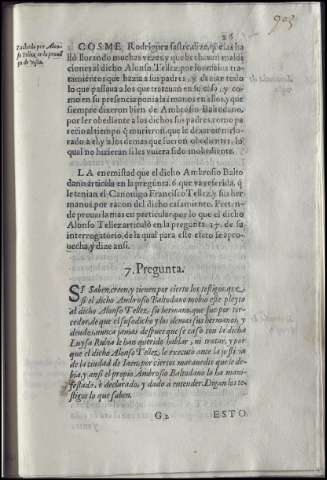 26
903
Tachado por Alonso Tellez en la pregunta
COSME, Rodriguez sastre dize, que las ha
llò llorando muchas vezes, y que les echauan maldi
ciones al dicho Alonso Tellez, por los malos tra
tamientos que hazia a sus padres, y dezian todo
lo que passaua a los que entrauan en su casa, y co
mo en su presencia ponia las manos en ellos, y que
siempre dixeron bien de Ambrosio Baltodano,
por ser obediente a los dichos sus padres, como pa
recio al tiempo q̃ murieron, que le dexaron mejo
rado a el, y a los demas que fueron obedientes, lo
qual no hizieran si les huuiera sido inobediente.
LA enemistad que el dicho Ambrosio Balto
dano articula en la pregunta. 6. que va referida, q̃
le tenian el Canonigo Francisco Tellez, y sus her
manos, por razon del dicho casamiento. Preten-
de prouarla mas en particular, por lo que el dicho
Alonso Tellez articulò en la pregunta. 17. de su
interrogatorio, de la qual para este efeto se apro
uecha, y dize ansi.
7. Pregunta.
SI Saben, creen, y tienen por cierto los testigos, que
si el dicho Ambrosio Baltodano mobio este pleyto
al dicho Alonso Tellez, su hermano, que fue por ter-
ceros, de que el susodicho y los demas sus hermanos, y
deudos, nunca jamas despues que se caso con la dicha
Luysa Rubio le han querido hablar, ni tratar, y por
que el dicho Alonso Tellez, le executo ante la justicia
de la ciudad de Iaen, por ciertos marauedis que le de-
bia, y ansi el propio Ambrosio Baltodano lo ha mani-
festado, è declarado, y dado à entender. Digan los tes-
tigos lo que saben.
G2 ESTO